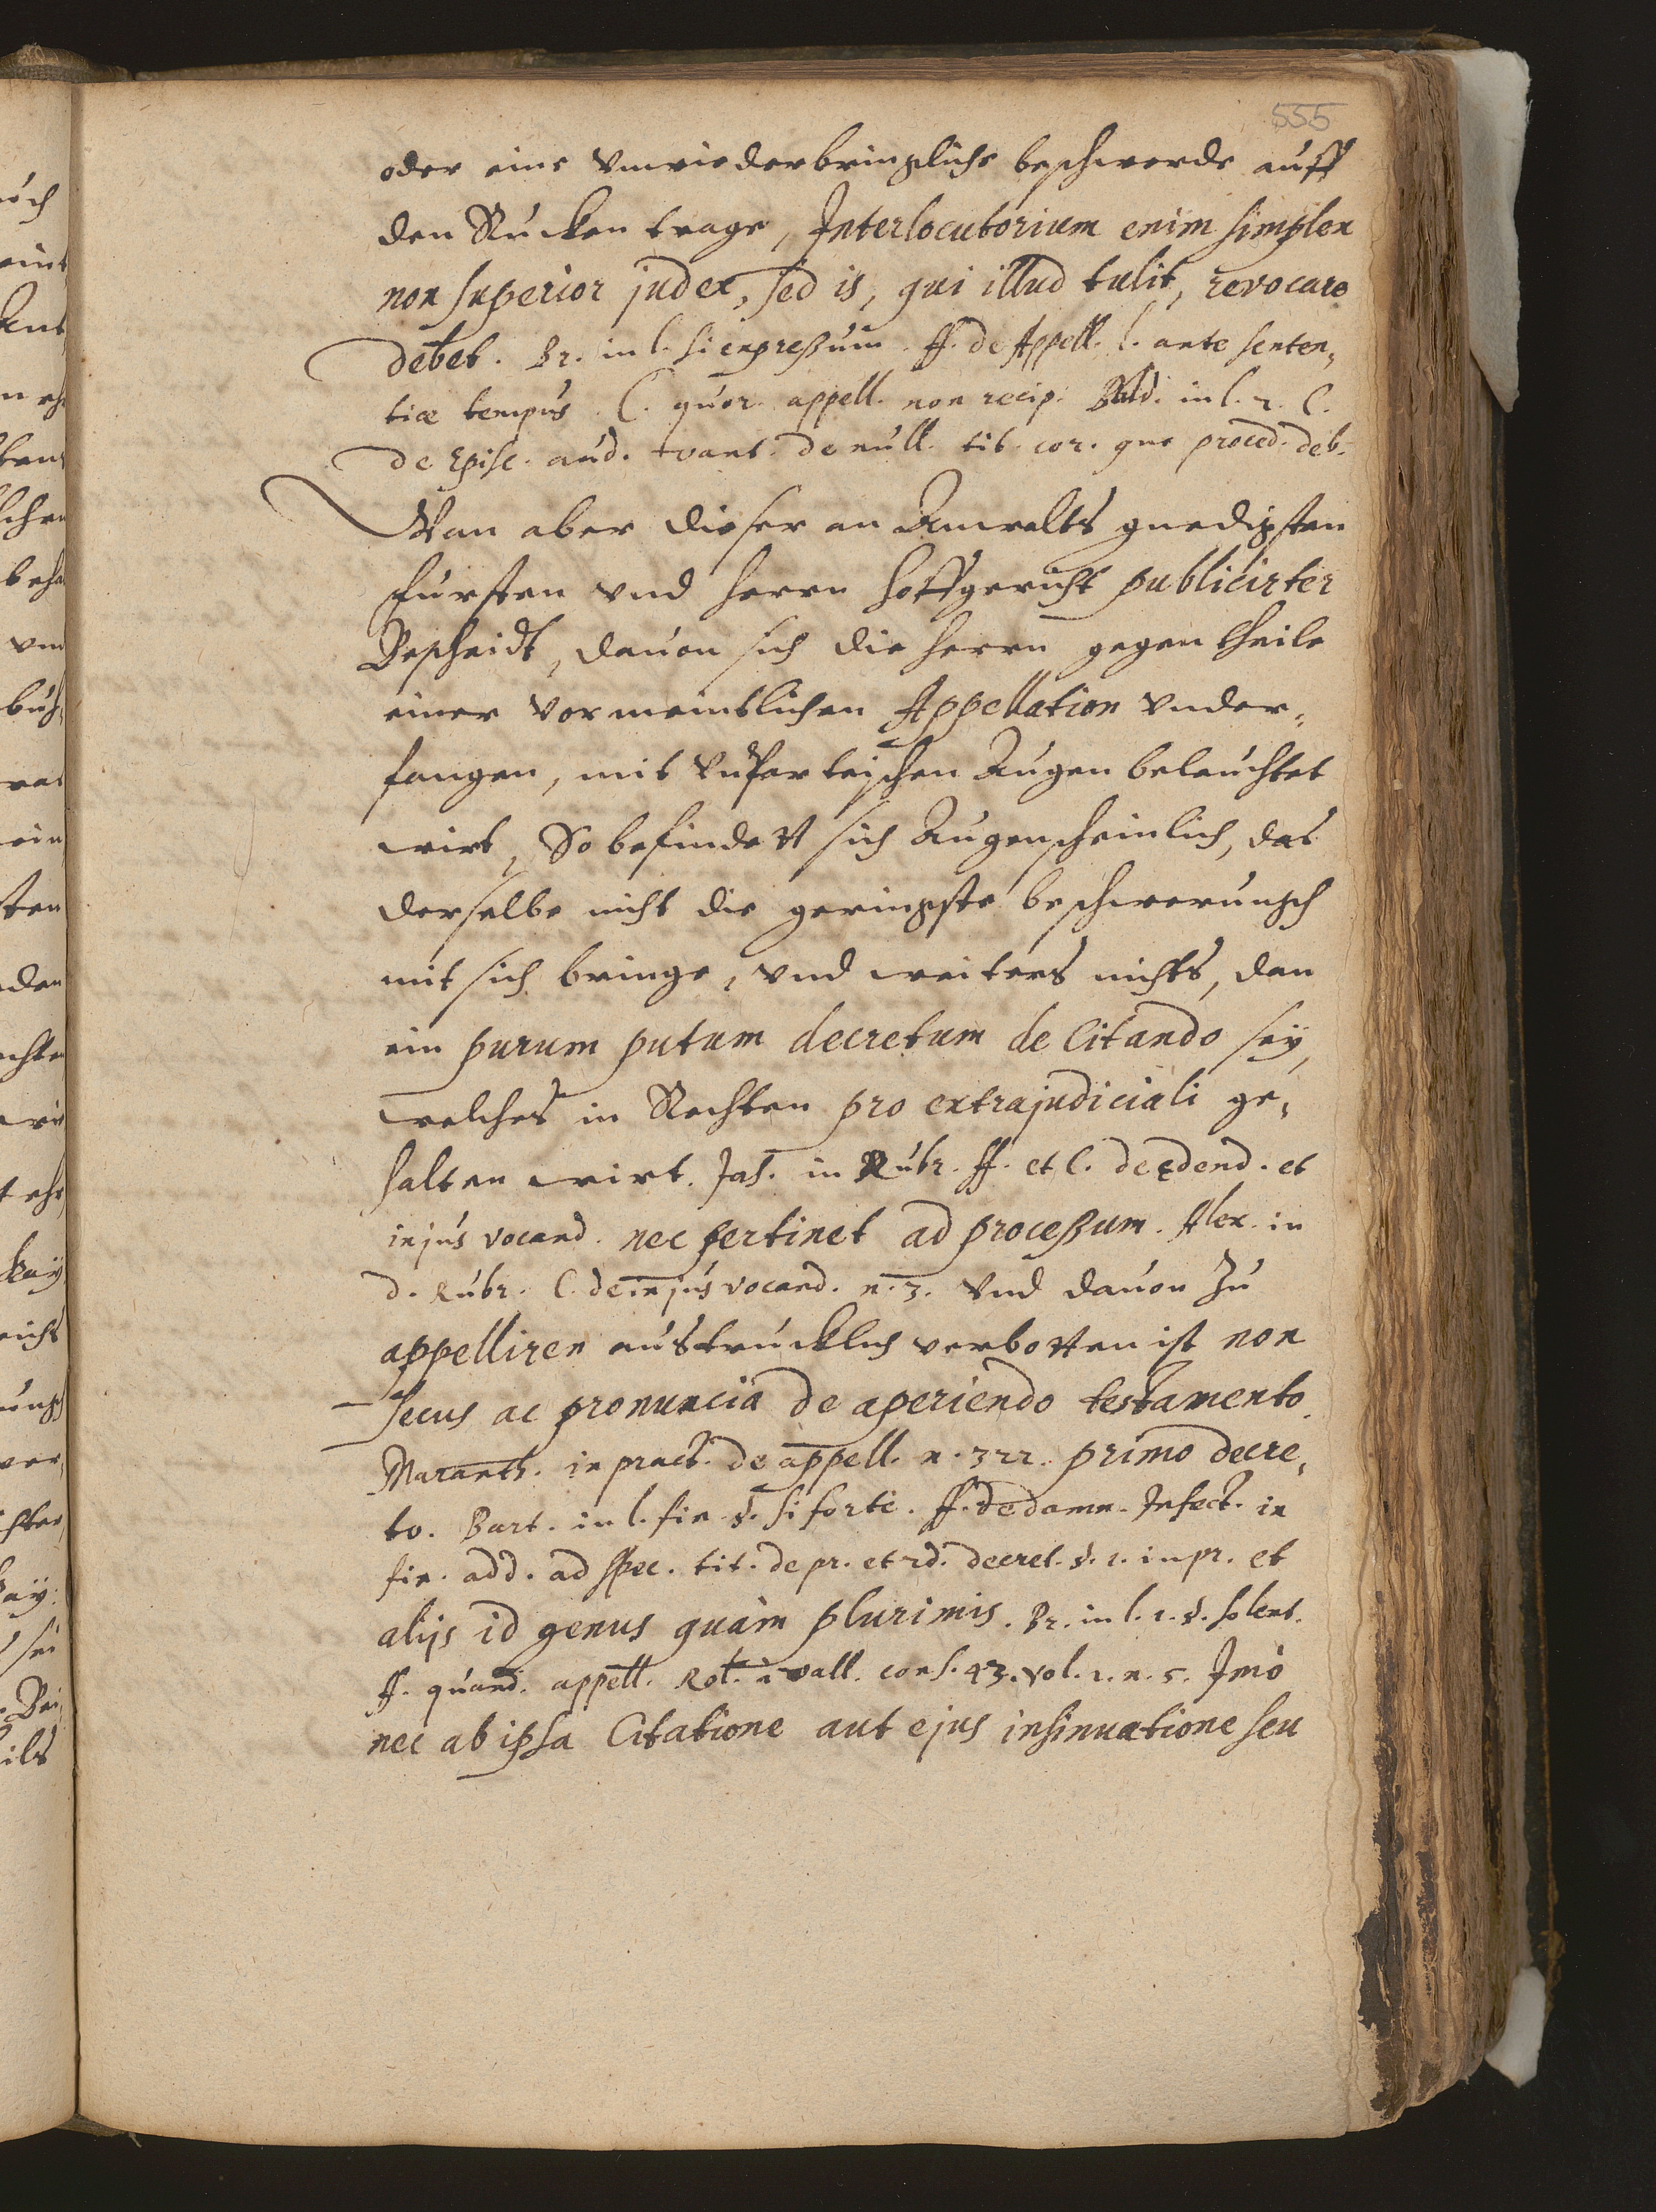 555
oder eine vnwiederbringliche beschwerde auff
den Rucken trage, Interlocutorium enim simplex
non superior judex, sed is, qui illud tulit, revocare
debet. Br. in l. si expreßum. ff. de Appell. l. ante senten,
tiæ tempus. C. quor. appell. non recip. Bald. in l. 2. C.
de Episc. aud. vant. de null. tit. cor. quo proced. deb.
Wan aber dieser an Anwalts gnedigsten
Fursten vnd Herrn Hoffgericht publicirter
Bescheidt, dauon sich die Herrn gegentheile
einer vormeintlichen Appellation vnder,
fangen, mit vnparteischen Augen beleuchtet
wirt, So befindett sich Augenscheinlich, das
derselbe nicht die geringste beschwerungh
mit sich bringe, vnd weiters nichts, dan
ein purum putum decretum de Citando seÿ,
welches in Rechten pro extrajudiciali ge,
halten wirt. Jas. in Rubr. ff. et C. de edend. et
in jus vocand. nec pertinet ad proceßum. Alex. in
d. Rubr. C. de in jus vocand. n. 3. Vnd dauon zu
appelliren austrucklich verbotten ist non
secus ac pronuncia de aperiendo testamento
Maranth. in pract. de appell. n. 322. primo decre,
to. Bart. in l. fin. §. si forte. ff. de damn. Infect. in
fin. add. ad Spec. tit. de pr. et 2d. decret. §. 1. in pr. et
alijs id genus quàm plurimis. Br. in l. 1. §. solent.
ff. quand. appell. Rol. à vall. cons. 43. vol. 1. n. 5. Imò
nec ab ipsa Citatione aut ejus insinuatione seu